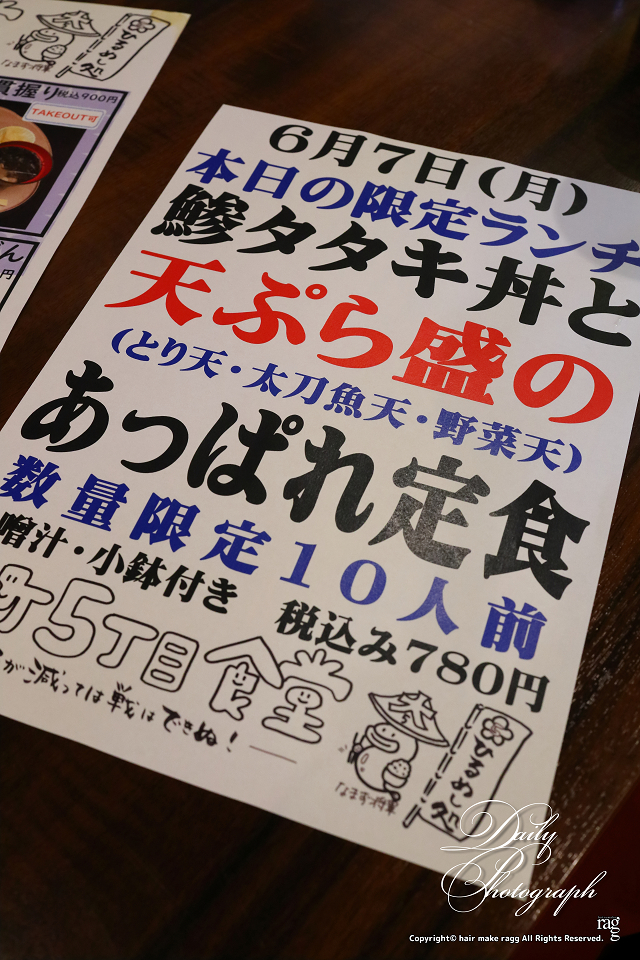 ひるめし処
なまず将軍
貫握り税込900円
TAKEOUT可
どん
円
6月7日(月)
本日の限定ランチ
鯵タタキ丼と
天ぷら盛の
(とり天・太刀魚天・野菜天)
あっぱれ定食
数量限定10人前
噌汁・小鉢付き 税込み780円
町5丁目食堂
が減っては戦はできぬ!
なまず将軍
ひるめし処
Daily
Photograph
ragg
Copyright© hair make ragg All Rights Reserved.